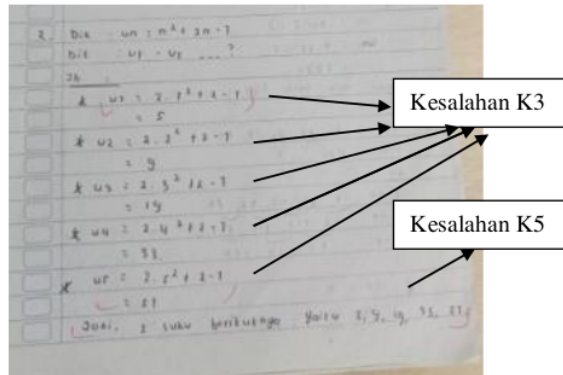 2. Dik : un : n² + 2n - 7
Dit : u1 - u5 ... ?
Jb
* u1 = 2 . 1² + 2 - 7
= 5
* u2 = 2 . 2² + 2 - 7
= 9
* u3 = 2 . 3² + 2 - 7
= 19
* u4 = 2 . 4² + 2 - 7
= 33
* u5 = 2 . 5² + 2 - 7
= 51
Jadi, 5 suku berikutnya yaitu 5, 9, 19, 33, 51
Kesalahan K3
Kesalahan K5